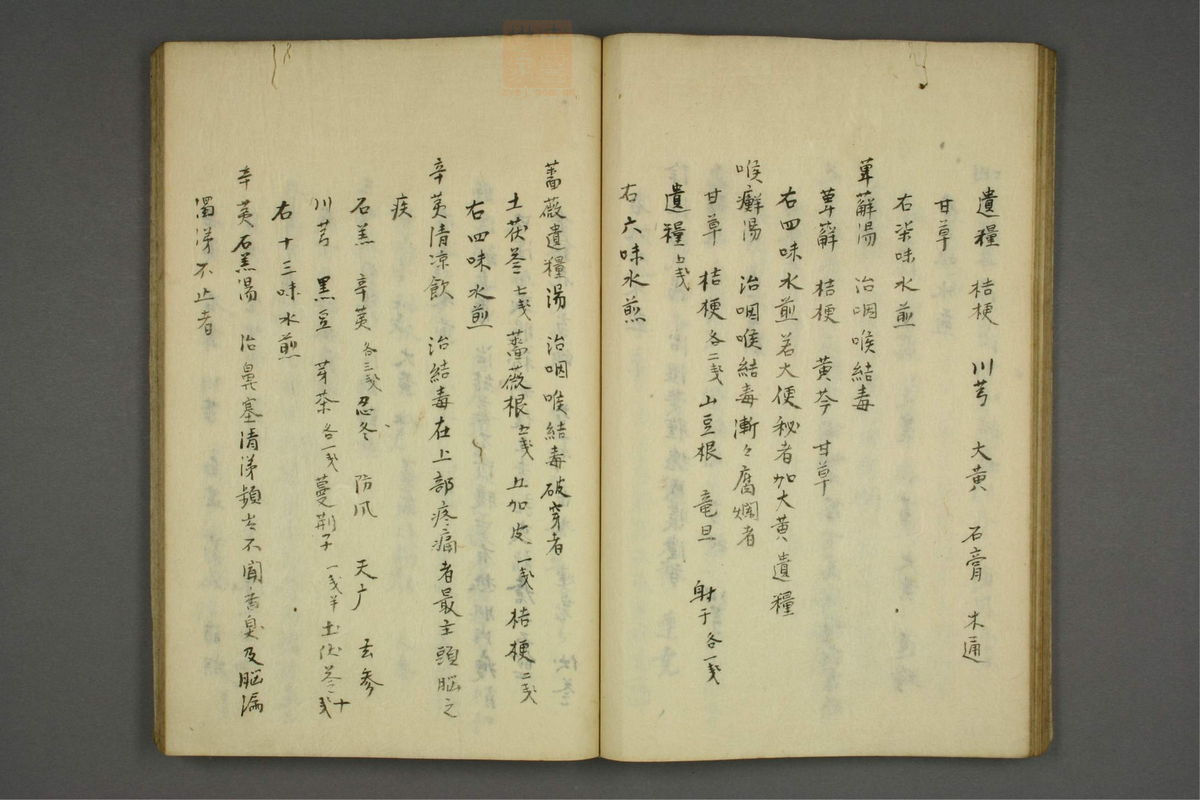 遺糧 桔梗 川芎 大黄 石膏 木通
甘草
右柒味水煎
萆薢湯 治咽喉結毒
萆薢 桔梗 黄芩 甘草
右四味水煎若大便秘者加大黄遺糧
喉癬湯 治咽喉結毒漸々腐爛者
甘草 桔梗各二戋 山豆根 竜旦 射干各一戋
遺糧五戋
右六味水煎
薔薇遺糧湯 治咽喉結毒破穿者
土茯苓七戋 薔薇根五戋 五加皮一戋 桔梗二戋
右四味水煎
辛荑清凉飲 治結毒在上部疼痛者最主頭脳之
疾
石羔 辛荑各三戋 忍冬 防风 天广 玄参
川芎 黒豆 芽茶各一戋 蔓荆子一戋半 土伏苓十戋
右十三味水煎
辛荑石羔湯 治鼻塞清涕頻出不聞香臭及脳漏
濁涕不止者